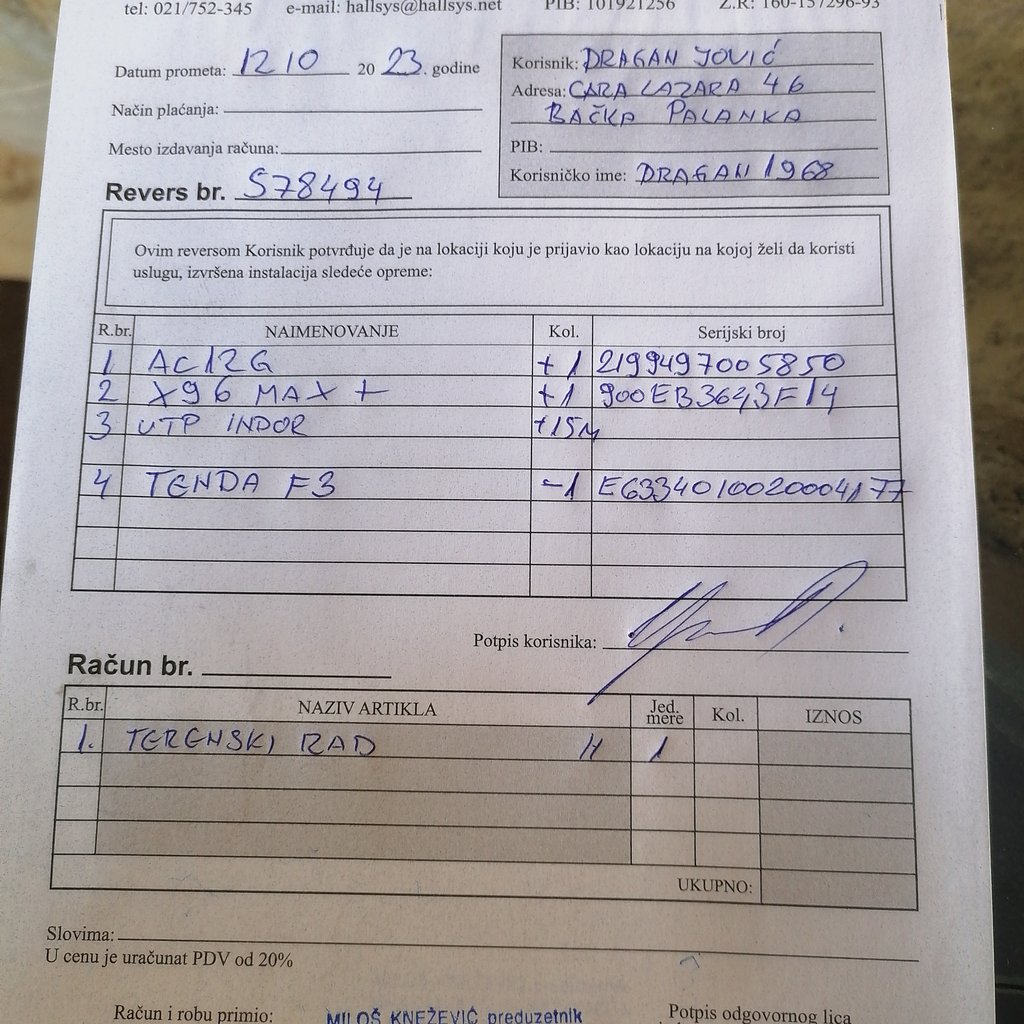 tel: 021/752-345 e-mail: hallsys@hallsys.net PIB: 101921256 Z.R: 160-157296-93
Datum prometa: 12 10 20 23. godine
Način plaćanja:
Mesto izdavanja računa:
Revers br. S78494
Korisnik: DRAGAN JOVIĆ
Adresa: CARA LAZARA 46
BAČKA PALANKA
PIB:
Korisničko ime: DRAGAN 1968
Ovim reversom Korisnik potvrđuje da je na lokaciji koju je prijavio kao lokaciju na kojoj želi da koristi
uslugu, izvršena instalacija sledeće opreme:
R.br. NAIMENOVANJE Kol. Serijski broj
1 AC12G +1 2199497005850
2 X96 MAX + +1 900EB3643F14
3 UTP INDOR +15M
4 TENDA F3 -1 E6334010020004177
Potpis korisnika:
Račun br.
R.br. NAZIV ARTIKLA Jed. mere Kol. IZNOS
1. TERENSKI RAD H 1
UKUPNO:
Slovima:
U cenu je uračunat PDV od 20%
Račun i robu primio: MILOŠ KNEŽEVIĆ preduzetnik Potpis odgovornog lica